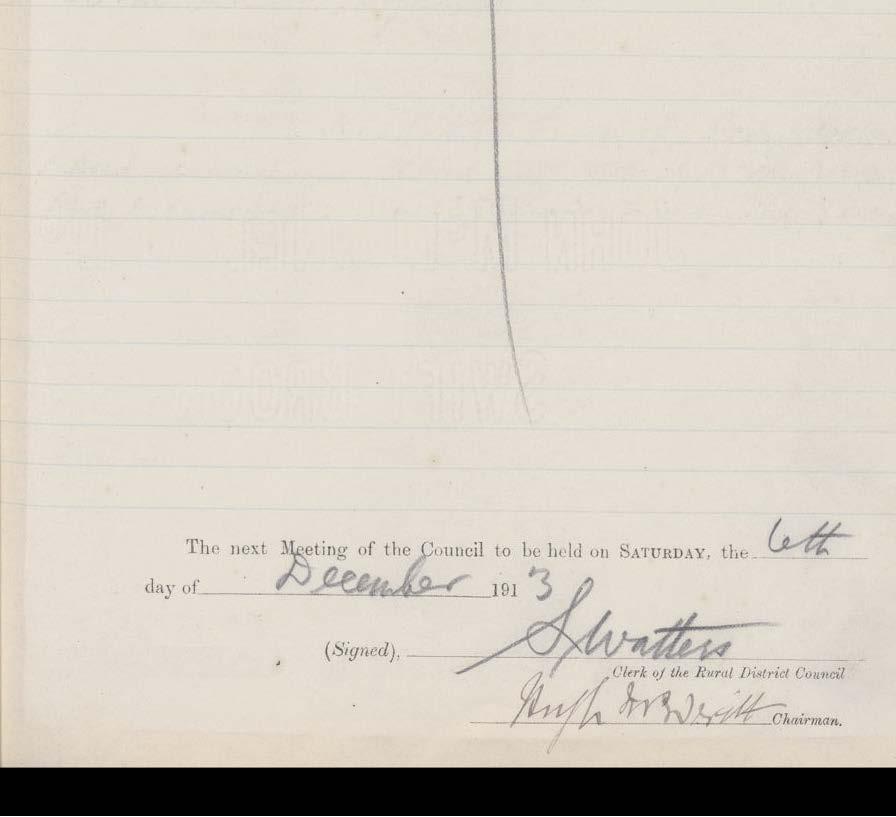 The next Meeting of the Council to be held on SATURDAY, the 6th
day of December 1913
(Signed), S Watters
Clerk of the Rural District Council
Hugh Chairman.